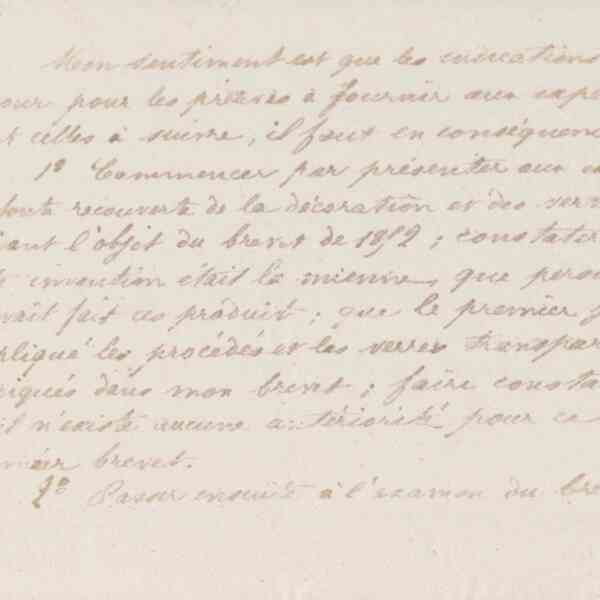 Mon sentiment est que les indications
jour pour les preuves à fournir aux expe
t celles à suivre, il faut en conséquenc
1º Commencer par présenter aux
recouverte de la décoration et des verr
ant l'objet du brevet de 1852 ; constater
invention était la mienne, que perso
vait fait ces produits ; que le premier j
pliqué les procédés et les verres transpar
iqués dans mon brevet ; faire consta
il n'existe aucune antériorité pour ce
mier brevet.
2º Passer ensuite à l'examen du bre